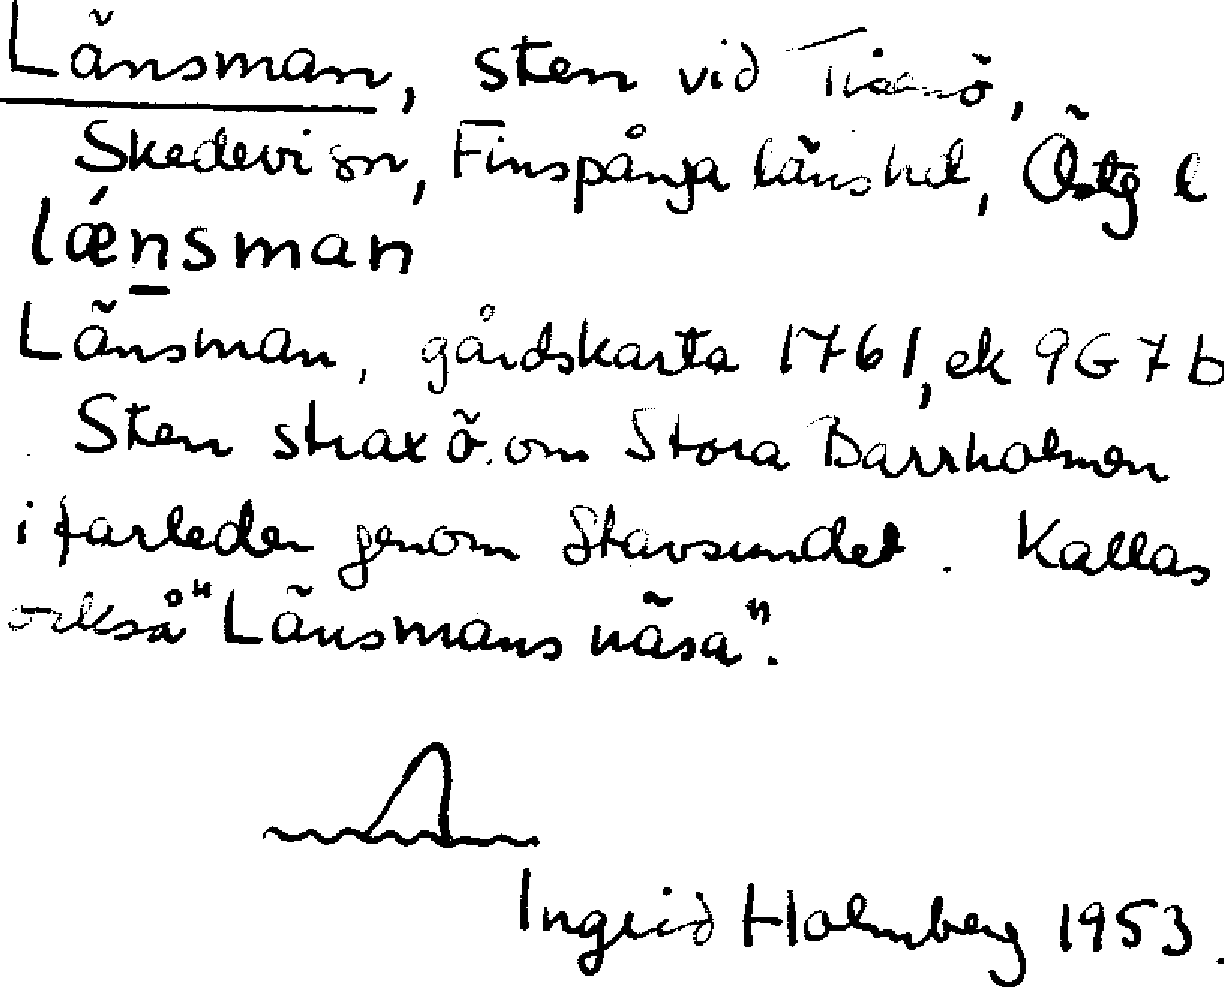 Länsman, sten vid
Skedevi sn, Finspånga länshd, Östg l
lǽnsman
Länsman, gårdskarta 1761, ek 9G 7b
Sten strax ö. om Stora Barrholmen
i farleden genom Stavsundet. Kallas
också "Länsmans näsa".
Ingrid Holmberg 1953.